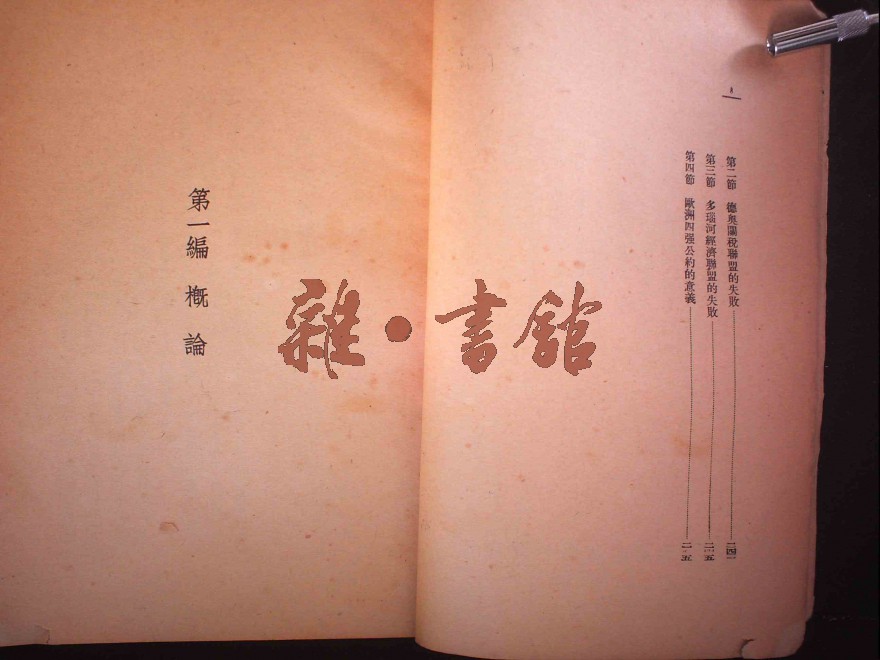 8
第二節 德奧關稅聯盟的失敗
第三節 多瑙河經濟聯盟的失敗
第四節 歐洲四强公約的意義
第一編 概論
雜·書舘